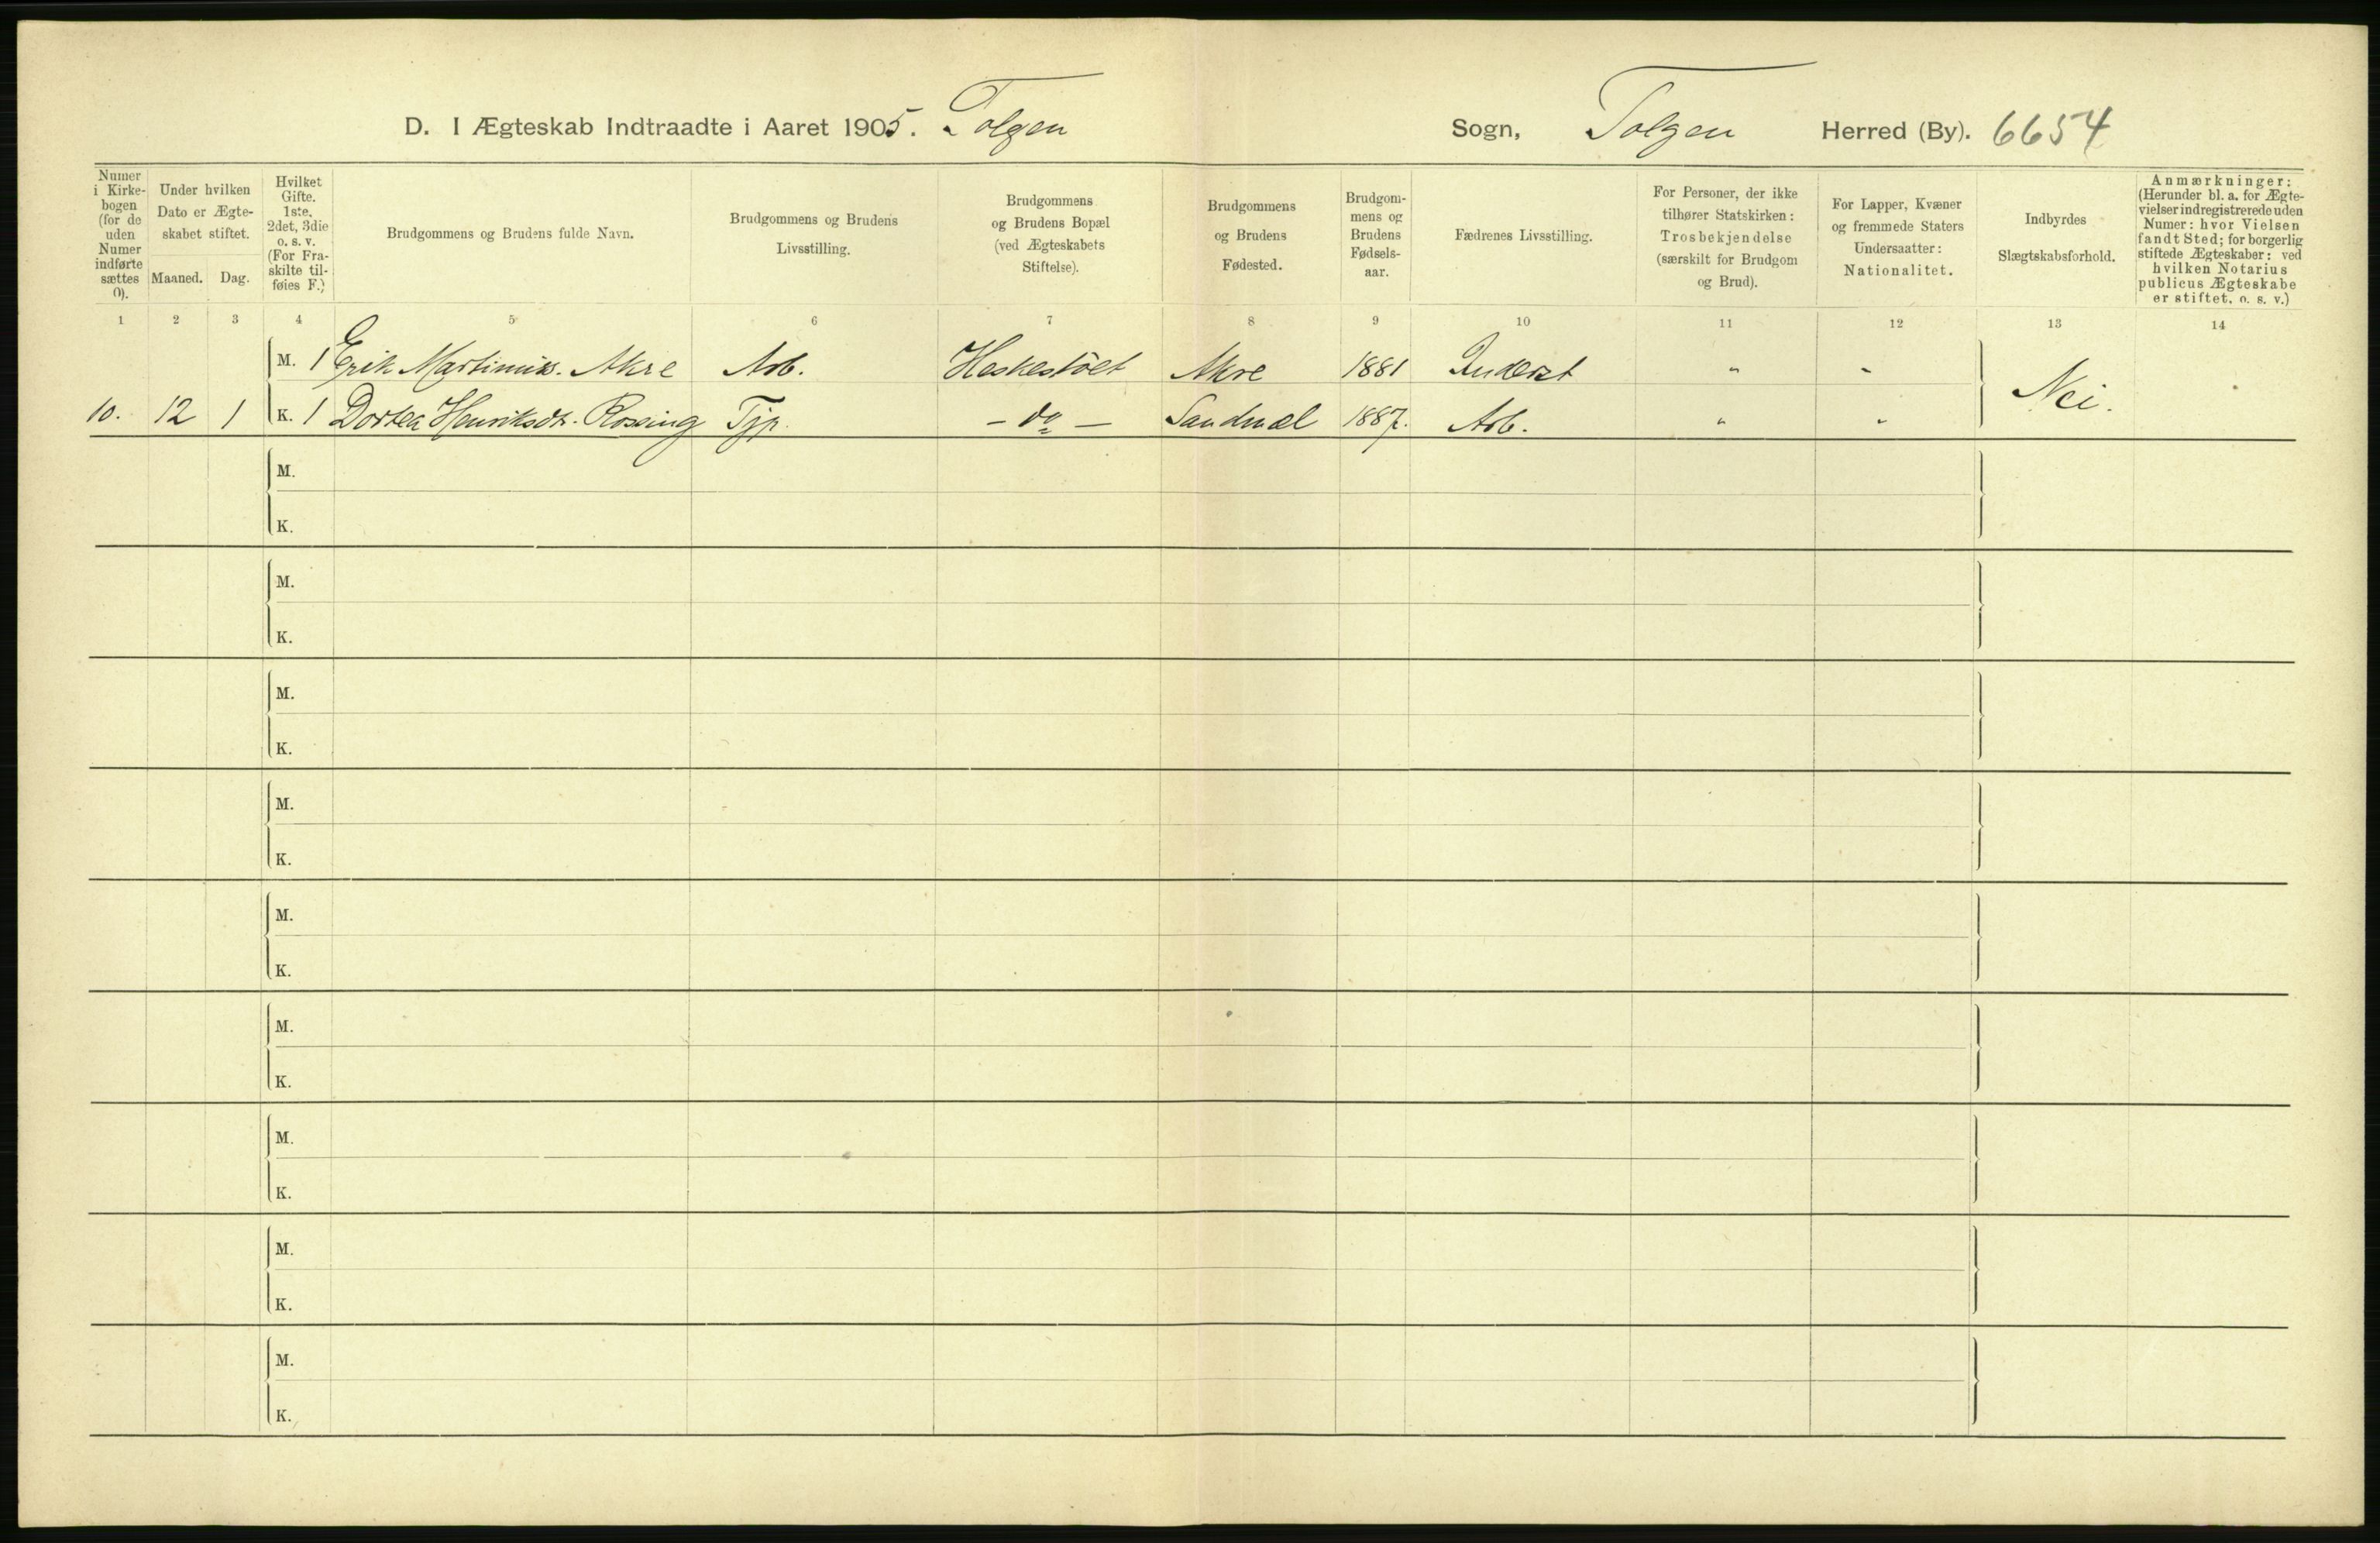 D. I Ægteskab Indtraadte i Aaret 1905. Tolgen Sogn, Tolgen Herred (By). 6654
Numer i Kirkebogen (for de uden Numer indførte sættes 0).
Under hvilken Dato er Ægteskabet stiftet.
Maaned. Dag.
Hvilket Gifte. 1ste, 2det, 3die o. s. v. (For Fraskilte tilføies F.)
Brudgommens og Brudens fulde Navn.
Brudgommens og Brudens Livsstilling.
Brudgommens og Brudens Bopæl (ved Ægteskabets Stiftelse).
Brudgommens og Brudens Fødested.
Brudgommens og Brudens Fødselsaar.
Fædrenes Livsstilling.
For Personer, der ikke tilhører Statskirken: Trosbekjendelse (særskilt for Brudgom og Brud).
For Lapper, Kvæner og fremmede Staters Undersaatter: Nationalitet.
Indbyrdes Slægtskabsforhold.
Anmærkninger: (Herunder bl. a. for Ægtevielser indregistrerede uden Numer: hvor Vielsen fandt Sted; for borgerlig stiftede Ægteskaber: ved hvilken Notarius publicus Ægteskabe er stiftet, o. s. v.)
1 2 3 4 5 6 7 8 9 10 11 12 13 14
M. 1 Erik Martinius. Akre Arb. Akre 1881 Inderst " "
10. 12 1 K. 1 Dortea Henriksdt. Røsaing Tjp. – do – Sandmæl 1887. Arb. " " Nei.
M.
K.
M.
K.
M.
K.
M.
K.
M.
K.
M.
K.
M.
K.
M.
K.
M.
K.